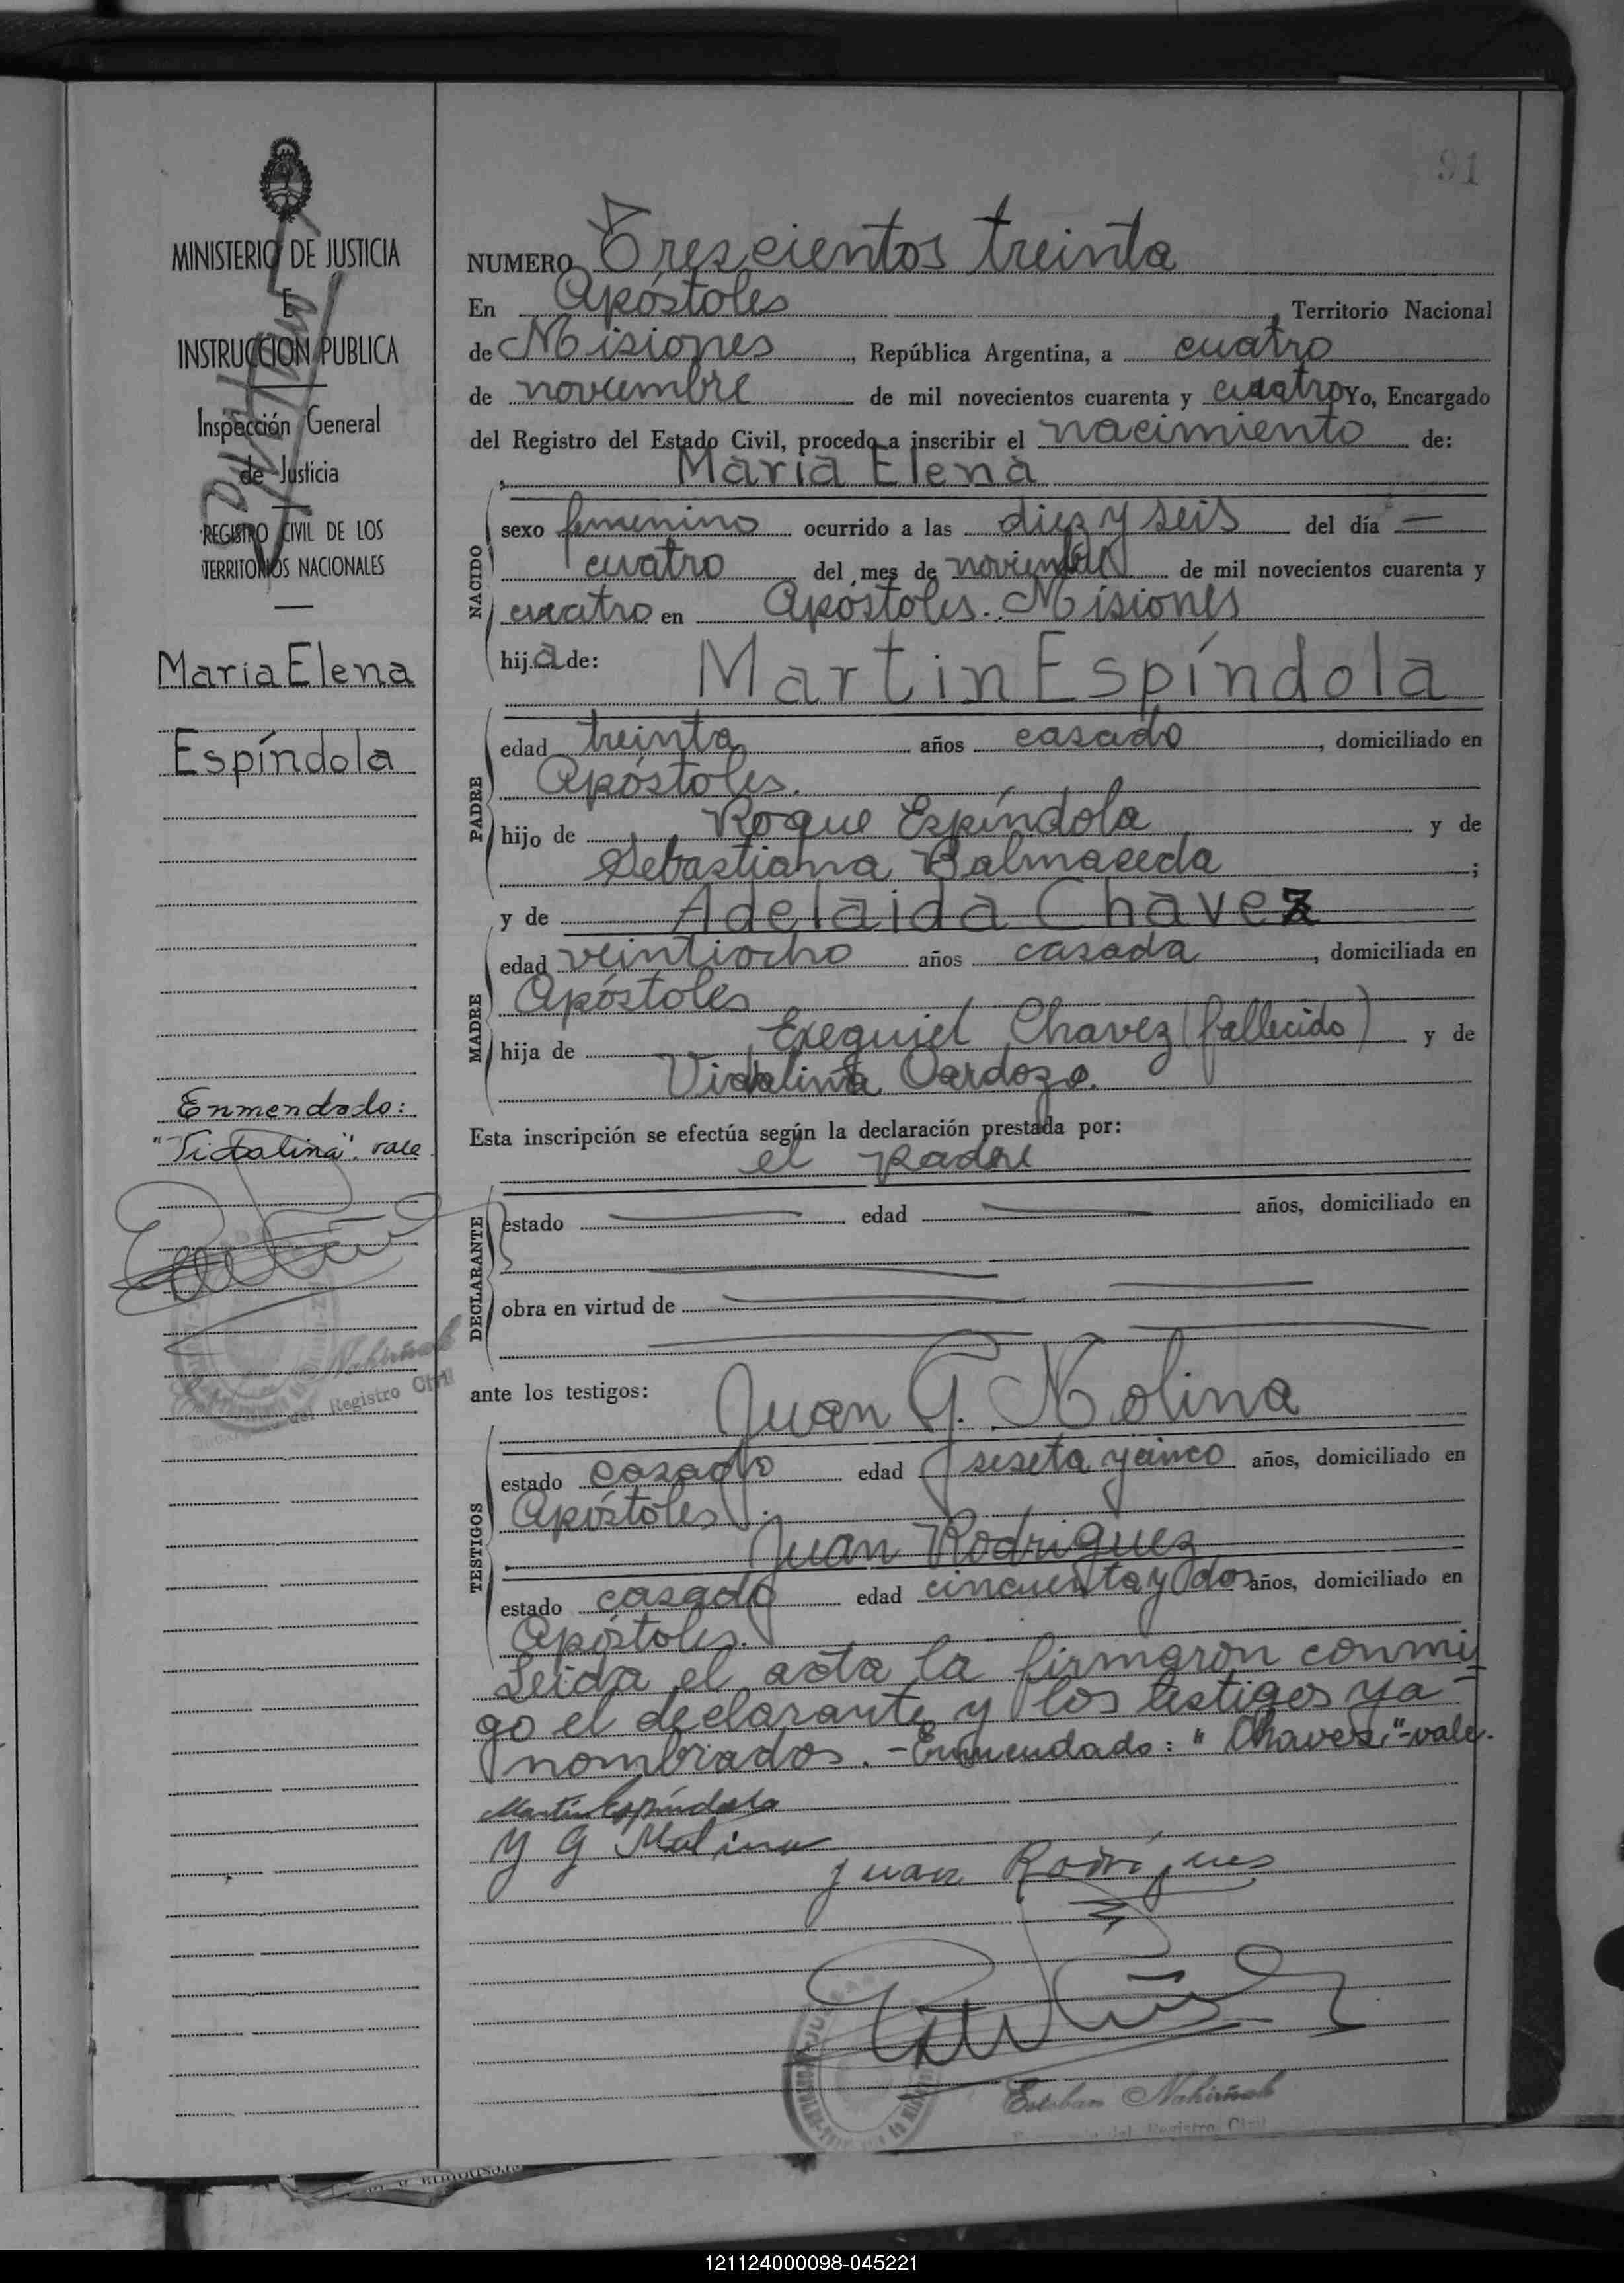 91
MINISTERIO DE JUSTICIA
E
INSTRUCCION PUBLICA
Inspección General
de Justicia
REGISTRO CIVIL DE LOS
TERRITORIOS NACIONALES
María Elena
Espíndola
Enmendado:
"Vidalina". vale
Nahirñak
del Registro Civil
NUMERO Trescientos treinta
En Apóstoles, Territorio Nacional
de Misiones, República Argentina, a cuatro
de noviembre de mil novecientos cuarenta y cuatro Yo, Encargado
del Registro del Estado Civil, procedo a inscribir el nacimiento de:
María Elena
NACIDO
sexo femenino ocurrido a las diez y seis del día —
cuatro del mes de noviembre de mil novecientos cuarenta y
cuatro en Apóstoles. Misiones
hija de: Martin Espíndola
PADRE
edad treinta años casado, domiciliado en
Apóstoles.
hijo de Roque Espíndola y de
Sebastiana Balmaceda;
y de Adelaida Chavez
MADRE
edad veintiocho años casada, domiciliada en
Apóstoles
hija de Exequiel Chavez (fallecido) y de
Vidalina Cardozo.
Esta inscripción se efectúa según la declaración prestada por:
el padre
DECLARANTE
estado — edad — años, domiciliado en
obra en virtud de —
ante los testigos: Juan G. Molina
TESTIGOS
estado casado edad seseta y cinco años, domiciliado en
Apóstoles.
Juan Rodriguez
estado casado edad cincuenta y dos años, domiciliado en
Apóstoles.
Leida el acta la firmaron conmi-
go el declarante y los testigos ya
nombrados. - Enmendado: "Chavez" - vale.
Martín Espíndola
Y G Molina
Juan Rodrigues
Esteban Nahirñak
del Registro Civil
121124000098-045221